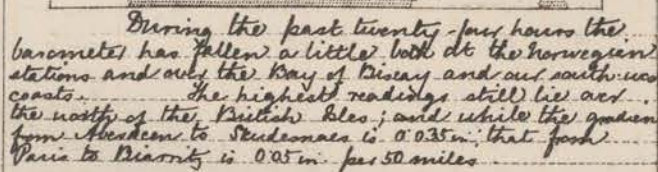 During the past twenty-four hours the
barometer has fallen a little both at the Norwegian
stations and over the Bay of Biscay and our south-wes
coasts. The highest readings still lie over
the north of the British Isles; and while the gradien
from Aberdeen to Skudesnaes is 0.035 in, that from
Paris to Biarritz is 0.05 in. per 50 miles.